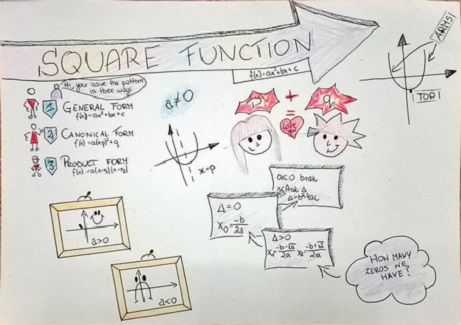 SQUARE FUNCTION
ARMS
f(x)=ax²+bx+c
Hi, you have the pattern
in three ways
1 GENERAL FORM
f(x)=ax²+bx+c
2 CANONICAL FORM
f(x)=a(x-p)²+q
3 PRODUCT FORM
f(x)=a(x-x₁)(x-x₂)
a≠0
p + q
= love
x=p
TOP!
Δ<0
Δ=b²-4ac
Δ=0
x₀=-b/2a
Δ>0
x₁=-b-√Δ/2a x₂=-b+√Δ/2a
a>0
a<0
HOW MANY
ZEROS WE
HAVE?